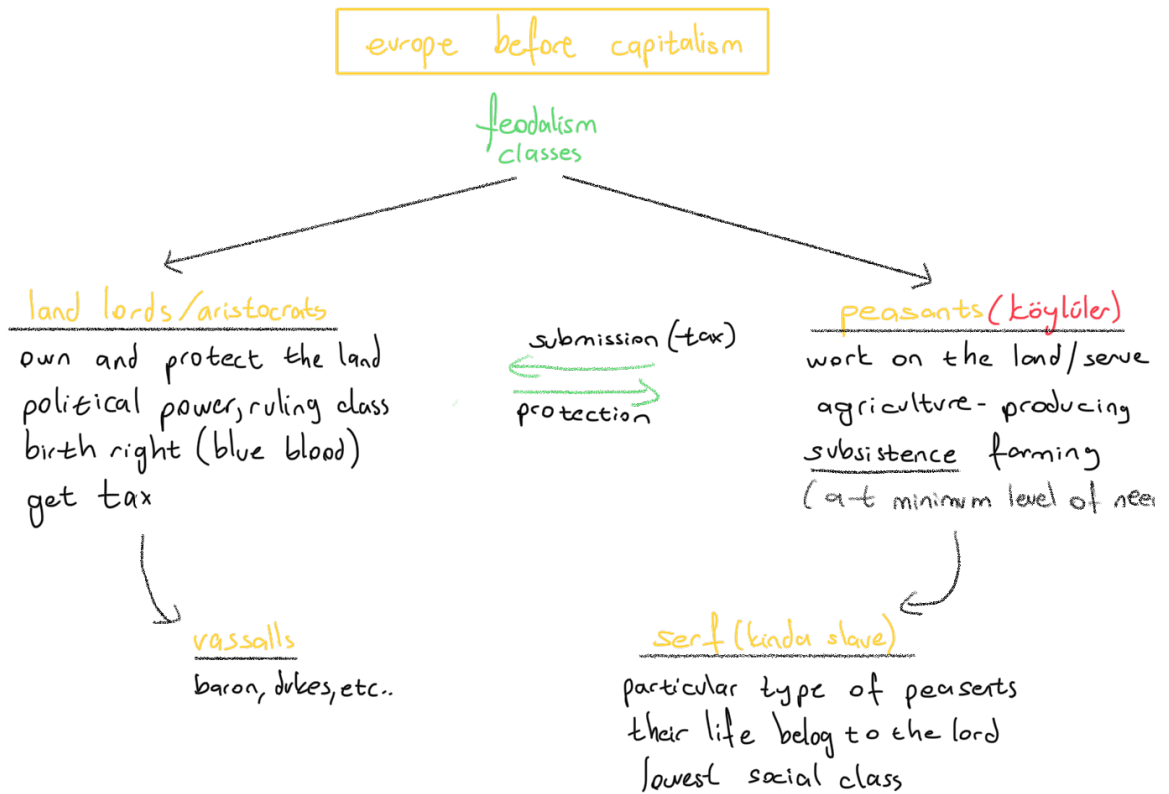 europe before capitalism
feodalism
classes
land lords/aristocrats
own and protect the land
political power, ruling class
birth right (blue blood)
get tax
submission (tax)
protection
peasants (köylüler)
work on the land/serve
agriculture - producing
subsistence farming
(at minimum level of need
vassalls
baron, dukes, etc..
serf (kinda slave)
particular type of peaserts
their life belog to the lord
lowest social class